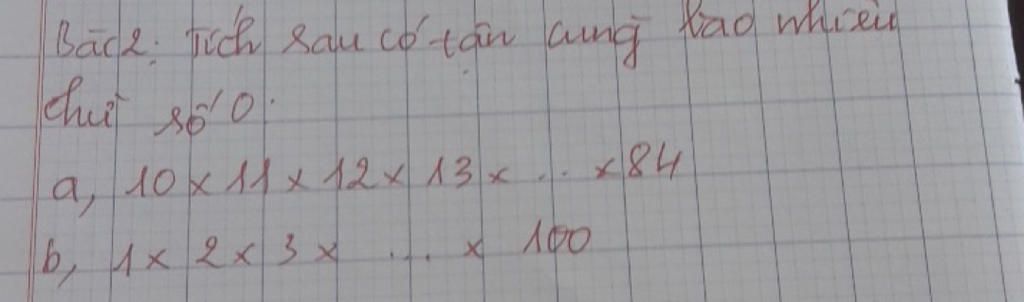 Bài 2: Tích sau có tận cùng bao nhiêu
chữ số 0:
a, 10 x 11 x 12 x 13 x ... x 84
b, 1 x 2 x 3 x .... x 100